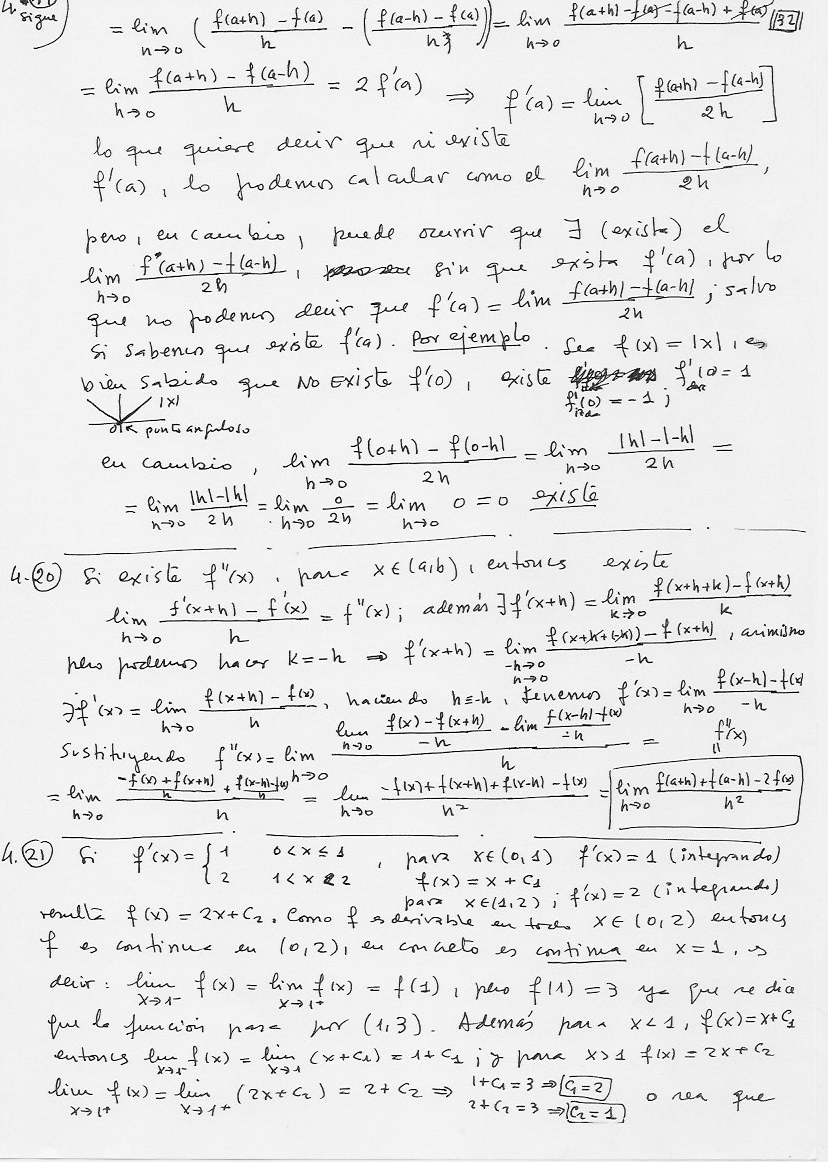 sigue
= lim h→0 ( (f(a+h) - f(a))/h - ( (f(a-h) - f(a))/h ) ) = lim h→0 (f(a+h) - f(a) - f(a-h) + f(a))/h 32
= lim h→0 (f(a+h) - f(a-h))/h = 2 f'(a) ⇒ f'(a) = lim h→0 [ (f(a+h) - f(a-h))/2h ]
lo que quiere decir que si existe
f'(a), lo podemos calcular como el lim h→0 (f(a+h) - f(a-h))/2h,
pero, en cambio, puede ocurrir que ∃ (exista) el
lim h→0 (f(a+h) - f(a-h))/2h, sin que exista f'(a), por lo
que no podemos decir que f'(a) = lim (f(a+h) - f(a-h))/2h; salvo
si sabemos que existe f'(a). Por ejemplo. Sea f(x) = |x|, es
bien sabido que NO EXISTE f'(0), existe f'dcha(0) = 1
f'izda(0) = -1;
|x|
0 punto anguloso
en cambio, lim h→0 (f(0+h) - f(0-h))/2h = lim h→0 (|h| - |-h|)/2h =
= lim h→0 (|h| - |h|)/2h = lim h→0 0/2h = lim h→0 0 = 0 existe
4.20 Si existe f''(x), para x∈(a,b), entonces existe
lim h→0 (f'(x+h) - f'(x))/h = f''(x); además ∃ f'(x+h) = lim k→0 (f(x+h+k) - f(x+h))/k
pero podemos hacer k=-h ⇒ f'(x+h) = lim -h→0 h→0 (f(x+h+(-h)) - f(x+h))/-h, asimismo
∃ f'(x) = lim h→0 (f(x+h) - f(x))/h, haciendo h≡-h, tenemos f'(x) = lim h→0 (f(x-h) - f(x))/-h
Sustituyendo f''(x) = lim h→0 (lim h→0 (f(x) - f(x+h))/-h - lim (f(x-h) - f(x))/-h)/h = f''(x)
= lim h→0 ((-f(x) + f(x+h))/h + (f(x-h) - f(x))/h)/h = lim h→0 (-f(x) + f(x+h) + f(x-h) - f(x))/h² = lim h→0 (f(a+h) + f(a-h) - 2f(x))/h²
4.21 Si f'(x) = { 1 0<x≤1, para x∈(0,1) f'(x) = 1 (integrando)
2 1<x<2 f(x) = x + C1
para x∈(1,2); f'(x) = 2 (integrando)
resulta f(x) = 2x + C2. Como f es derivable en todo x∈(0,2) entonces
f es continua en (0,2), en concreto es continua en x=1, es
decir: lim x→1⁻ f(x) = lim x→1⁺ f(x) = f(1), pero f(1) = 3 ya que se dice
que la función pasa por (1,3). Además para x<1, f(x) = x+C1
entonces lim x→1⁻ f(x) = lim x→1 (x+C1) = 1+C1; y para x>1 f(x) = 2x+C2
lim x→1⁺ f(x) = lim x→1⁺ (2x+C2) = 2+C2 ⇒ 1+C1=3 ⇒ C1=2
2+C2=3 ⇒ C2=1 o sea que